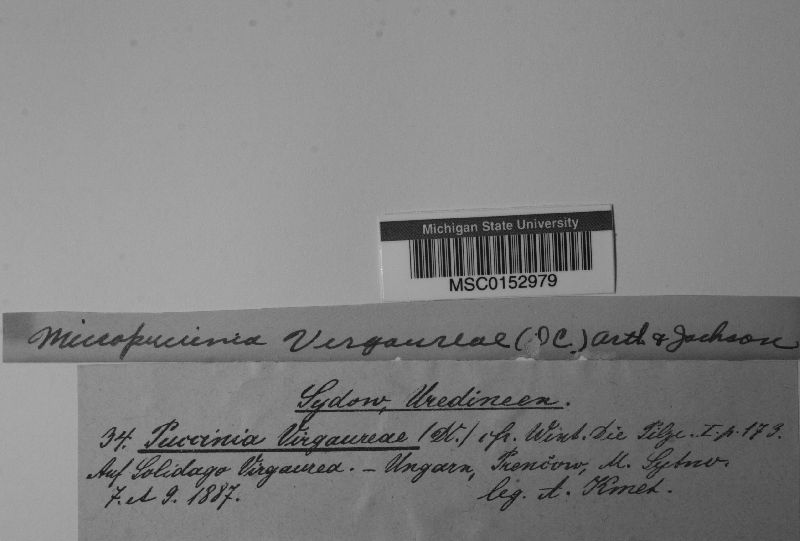 Michigan State University
MSC0152979
Micropuccinia Virgaureae (DC.) Arth & Jackson
Sydow, Uredineen.
34. Puccinia Virgaureae (DC.) cfr. Wint. Die Pilze. I. p. 173.
Auf Solidago Virgaurea. – Ungarn, Prenčow, M. Sytno.
7. et 9. 1887. leg. A. Kmet.